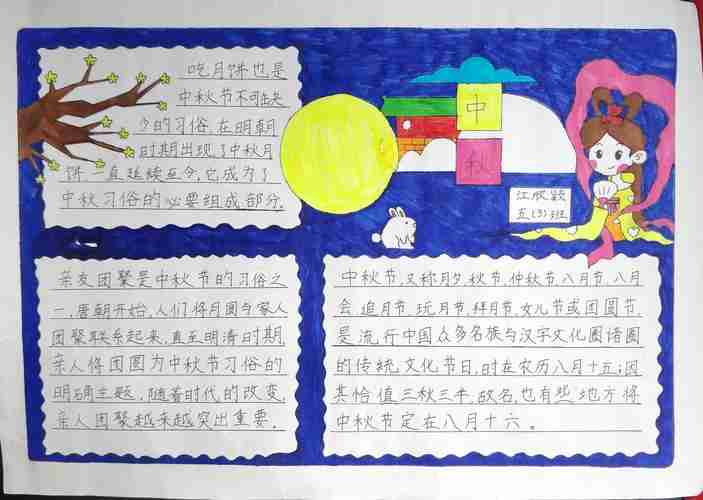 吃月饼也是
中秋节不可缺
少的习俗,在明朝
时期出现了中秋月
饼一直延续至今,它成为了
中秋习俗的必要组成部分.
中
秋
五(3)班
亲友团聚是中秋节的习俗之
一,唐朝开始,人们将月圆与家人
团聚联系起来,直至明清时期,
亲人将团圆为中秋节习俗的
明确主题,随着时代的改变,
亲人团聚越来越突出重要.
中秋节,又称月夕,秋节,仲秋节,八月节,八月
会,追月节,玩月节,拜月节,女儿节或团圆节,
是流行中国众多名族与汉字文化圈诸国
的传统文化节日,时在农历八月十五;因
其恰值三秋三半,故名,也有些地方将
中秋节定在八月十六。